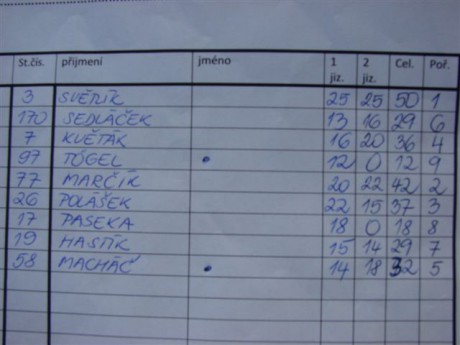 St.čís. příjmení jméno 1 jiz. 2 jiz. Cel. Poř.
3 SVĚTLÍK 25 25 50 1
170 SEDLÁČEK 13 16 29 6
7 KVĚTÁK 16 20 36 4
97 TÓGEL 12 0 12 9
77 MARČÍK 20 22 42 2
26 POLÁŠEK 22 15 37 3
17 PASEKA 18 0 18 8
19 HASTÍK 15 14 29 7
58 MACHÁČ 14 18 32 5